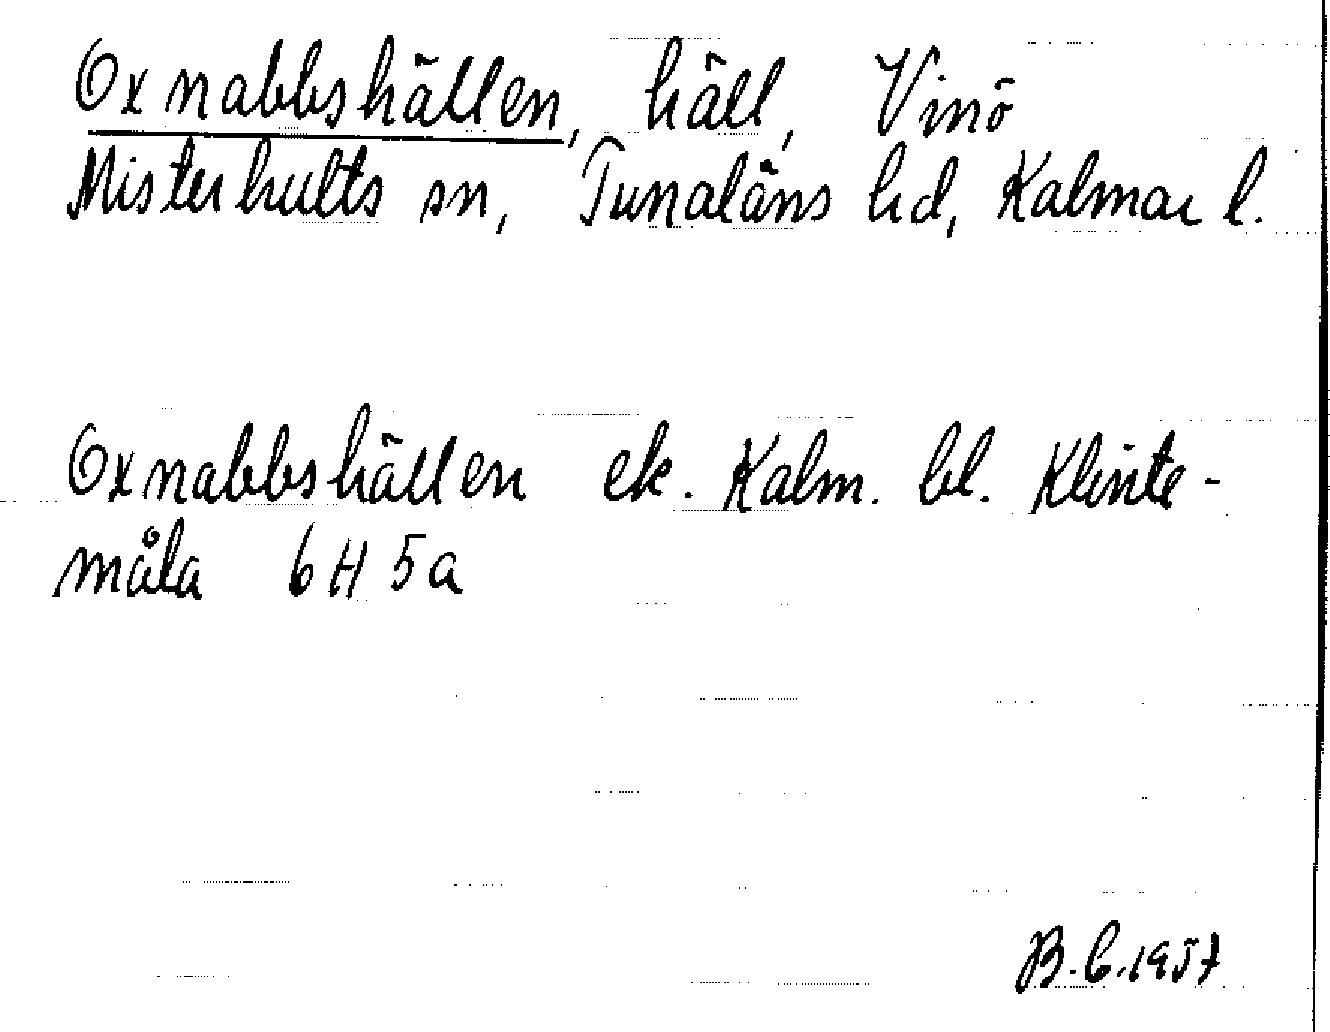 Oxnabbshällen, häll, Vinö
Misterhults sn, Tunaläns hd, Kalmar l.
Oxnabbshällen ek. Kalm. bl. Klinte-
måla 6H 5a
B.C.1957